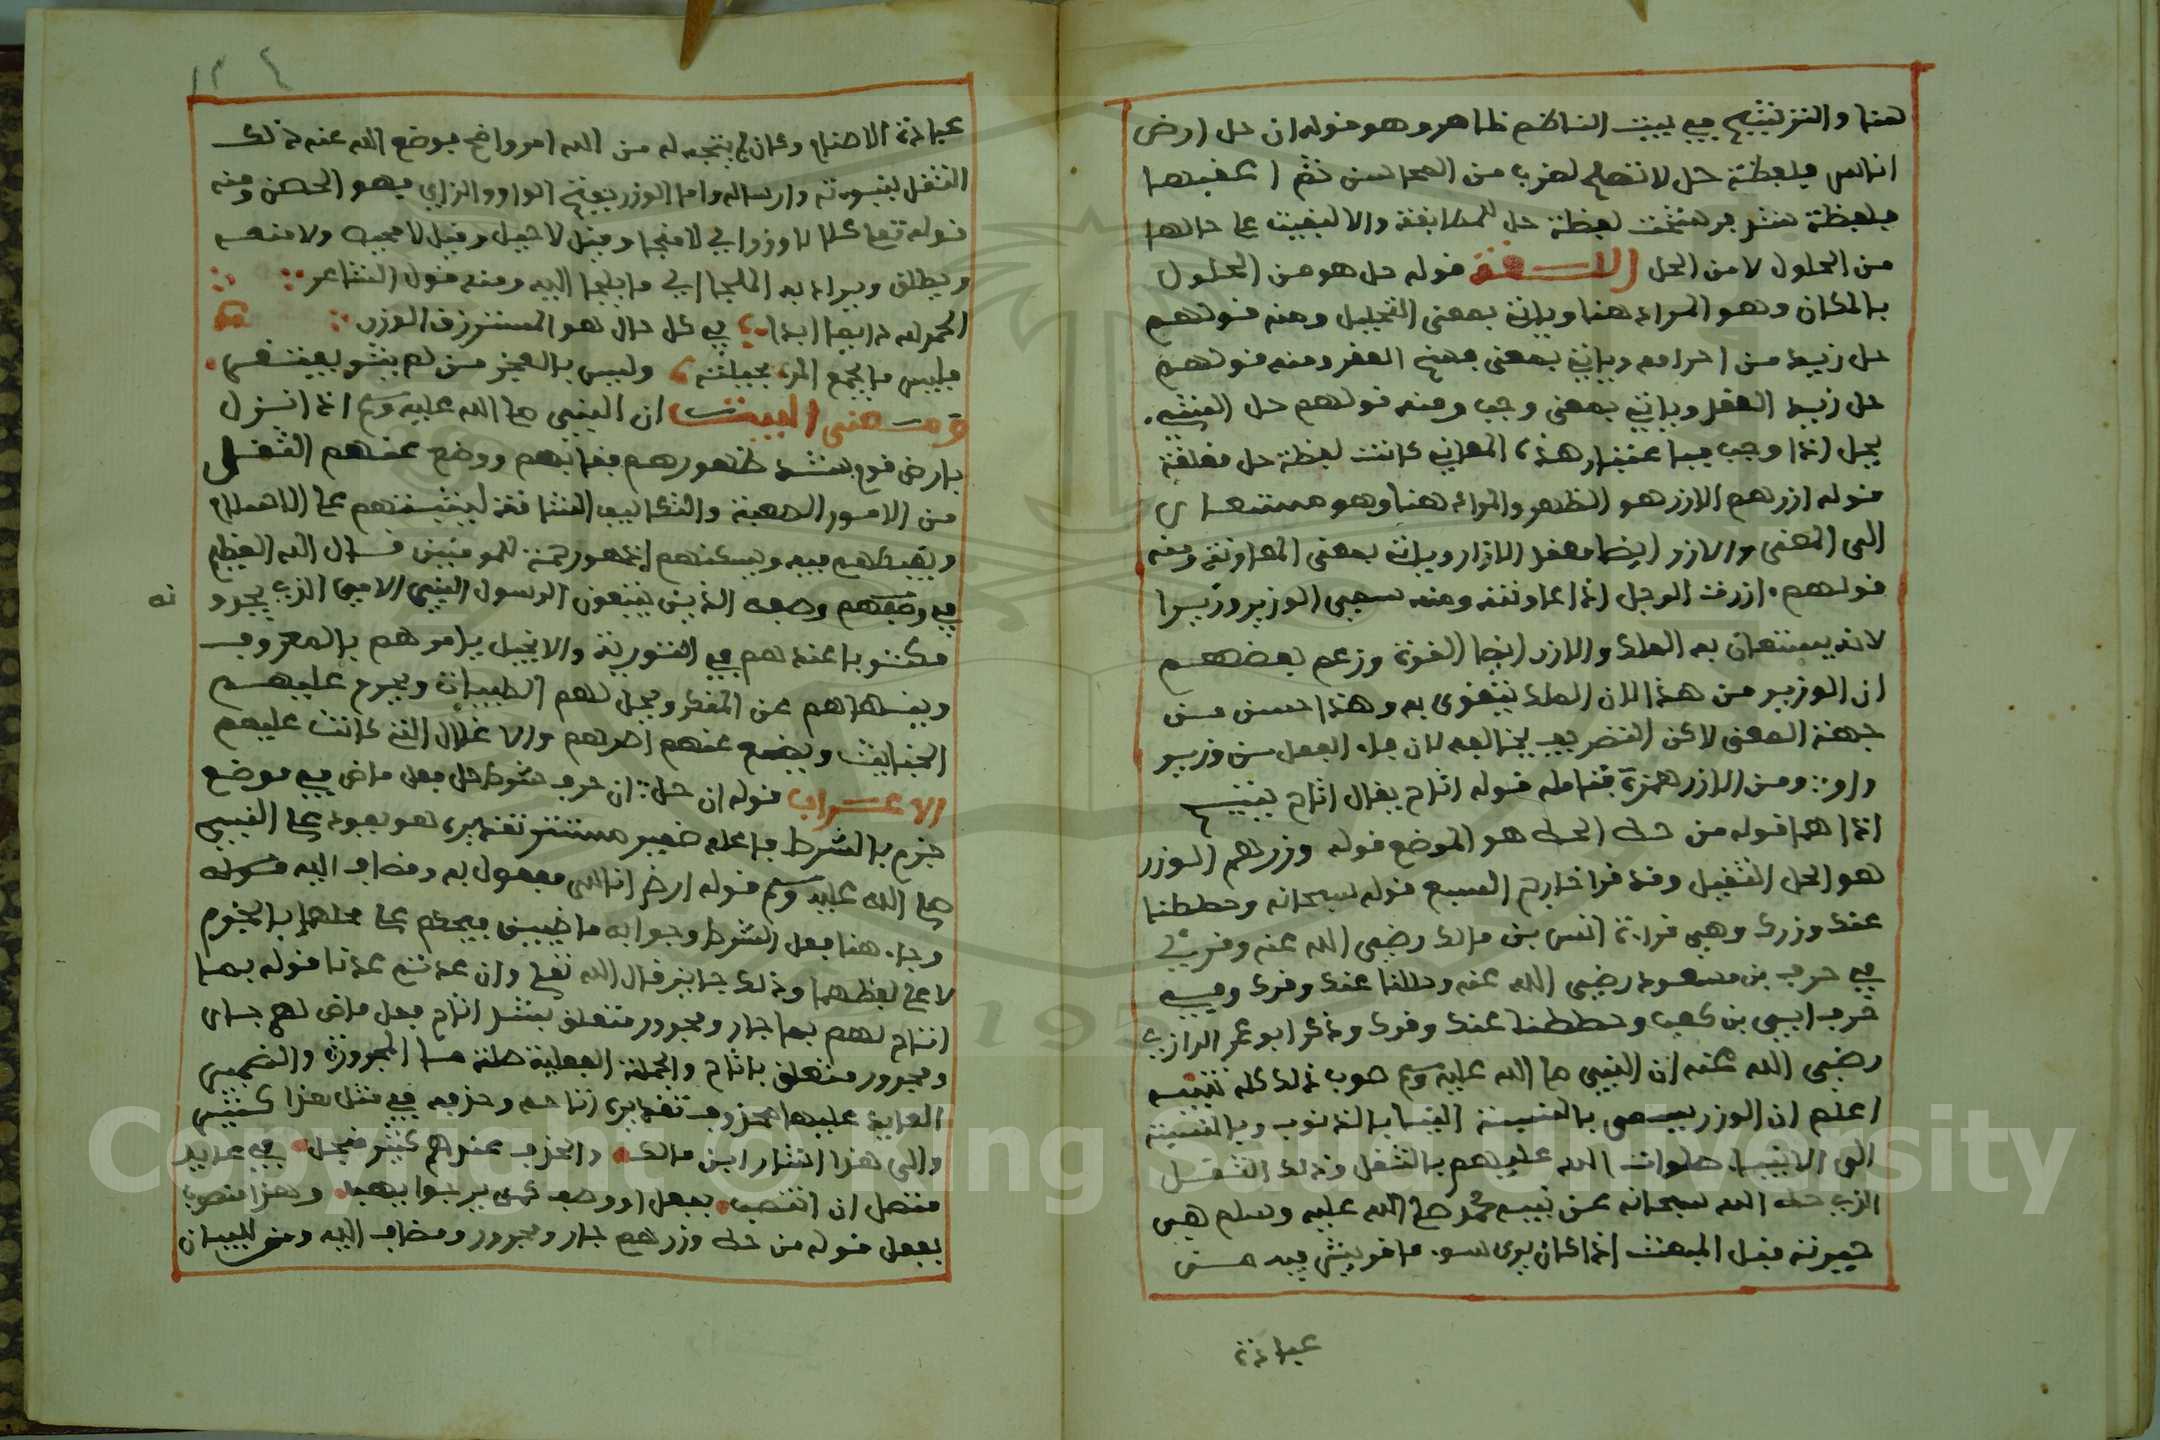 هنا والترشيح في بيت الناظم ظاهر وهو قوله ان حل ارض
اناس فلفظة حل لا تصلح لضرب من المحاسن ثم اعقبها
بلفظة شد فرشحت لفظة حل للمطابقة والا لبقيت على حالها
من الحلول لا من الحل اللغة قوله حل هو من الحلول
بالمكان وهو المراد هنا وياتي بمعنى التحليل ومنه قولهم
حل زيد من احرامه وياتي بمعنى فتح العقد ومنه قولهم
حل زيد العقد وياتي بمعنى وجب ومنه قولهم حل الشيء
يحل اذا وجب فباعتبار هذه المعاني كانت لفظة حل مغلقة
قوله ازرهم الازر هو الظهر والمراد هنا وهو مستعار
الى المعنى والازر ايضا معقد الازار وياتي بمعنى المعاونة ومنه
قولهم ازرت الرجل اذا عاونته ومنه سمي الوزير وزيرا
لانه يستعان به الملك والازر ايضا القوة وزعم بعضهم
ان الوزير من هذا لان الملك يتقوى به وهذا حسن من
جهة المعنى لاكن التصريف يخالفه لان فاء الفعل من وزير
واو ومن الازر همزة فتامله قوله اتاح يقال اتاح يتيح
اذا هيا قوله من حط الحط هو الوضع قوله وزرهم الوزر
هو الحمل الثقيل وقد قرا خارج السبع قوله سبحانه وحططنا
عنك وزرك وهي قراءة انس بن مالك رضي الله عنه وقرئ
في حرف بن مسعود رضي الله عنه وحللنا عنك وقرك وفي
حرف ابي بن كعب وحططنا عنك وقرك وذكر ابو عمر الرازي
رضي الله عنه ان النبي صلى الله عليه وسلم صوب ذلك كله تنبيه
اعلم ان الوزر يسمى بالنسبة الينا بالذنوب وبالنسبة
الى الانبياء صلوات الله عليهم بالثقل وذلك الثقل
الذي حطه الله سبحانه عن نبيه محمد صلى الله عليه وسلم هي
حيرته قبل المبعث اذا كان يرى سوء ما قريش فيه من
عبادة
عبادة الاصنام وكان لم يتجه له من الله امر واضح فوضع الله عنه ذلك
الثقل بنبوته وارساله واما الوزر بفتح الواو والزاي فهو الحصن ومنه
قوله تعالى كلا لا وزر اي لا منجا وقيل لا حيل وقيل لا محيص ولا منعه
ويطلق ويراد به الملجا اي ما يلجا اليه ومنه قول الشاعر
الحمد لله دايما ابدا في كل حال هو المسترزق الوزر
فليس ما يجمع المرء بحيلته وليس بالعجز من لم يثر يفتقر
ومعنى البيت ان النبي صلى الله عليه وسلم اذا نزل
بارض قوم شد ظهورهم فقابهم ووضع عنهم الثقل
من الامور الصعبة والتكاليف الشاقة ليثبتهم على الاسلام
في وصفهم وصفه الذين يتبعون الرسول النبي الامي الذي يجدو
نه
مكتوبا عندهم في التورية والانجيل يامرهم بالمعروف
وينهاهم عن المنكر ويحل لهم الطيبات ويحرم عليهم
الخبائث ويضع عنهم اصرهم والاغلال التي كانت عليهم
الاعراب قوله ان حل ان حرف شرط حل فعل ماض في موضع
جزم بالشرط فاعله ضمير مستتر تقديره هو يعود على النبي
صلى الله عليه وسلم قوله ارض اناس مفعول به ومضاف اليه قوله
وجاء هنا فعل الشرط وجوابه ماضيين فيحكم على محلهما بالجزم
لا على لفظهما وذلك جايز قال الله تعالى وان عدتم عدنا قوله بما
اتاح لهم بما جار ومجرور متعلق بشد اتاح فعل ماض لهم جار
ومجرور متعلق باتاح والجملة الفعلية صلة ما المجرورة والضمير
العايد عليها محذوف تقديره اتاحه وحذفه في مثل هذا كثير
والى هذا اشار ابن مالك والحذف عندهم كثير منجل في عايد
متصل ان انتصب بفعل او وصف كمن نرجوا يهب وهذا منصوب
بفعل قوله من حط وزرهم جار ومجرور ومضاف اليه ومن للبيان